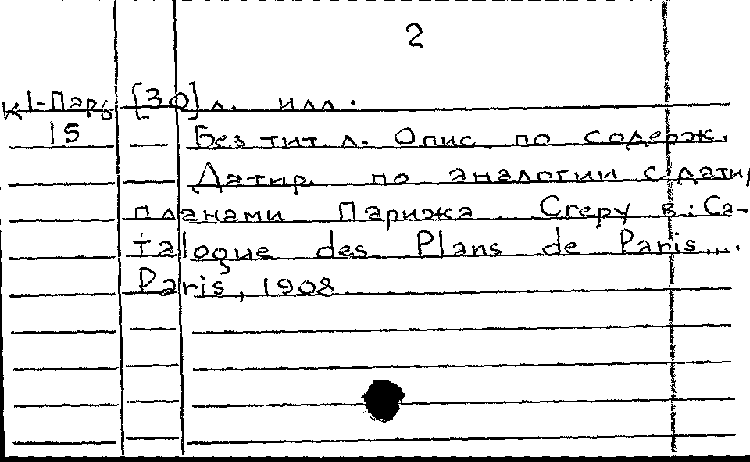 2
К1-Пар [30] л. илл.
15 Без тит. л. Опис. по содерж.
Датир. по аналогии с дати
планами Парижа Crepy в: Ca-
talogue des Plans de Paris...
Paris, 1908